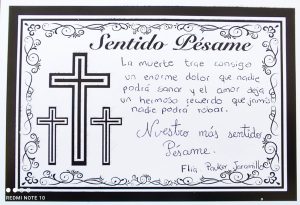 Sentido Pésame
La muerte trae consigo
un enorme dolor que nadie
podrá sanar y el amor deja
un hermoso recuerdo que jamás
nadie podrá robar.
Nuestro más sentido
Pésame.
Flia Jaramillo
REDMI NOTE 10